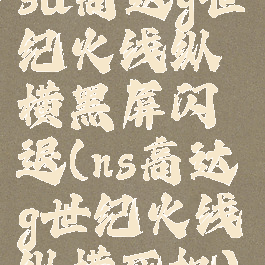 高达g世
纪火线纵
横黑屏闪
退(ns高达
g世纪火线
纵横死机)